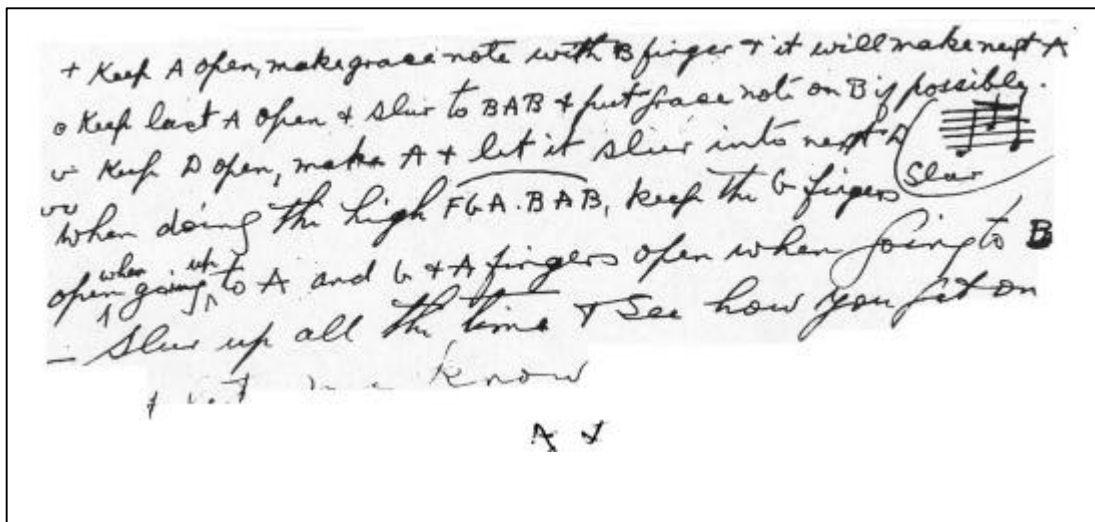 + Keep A open, make grace note with B finger & it will make next A
o Keep last A open & slur to BAB & put grace note on B if possibly.
v Keep D open, make A & let it slur into next A
Slur
vv When doing the high FGA.BAB, keep the G fingers
open when going up to A and G & A fingers open when going to B
— Slur up all the time & see how you get on
know
A &